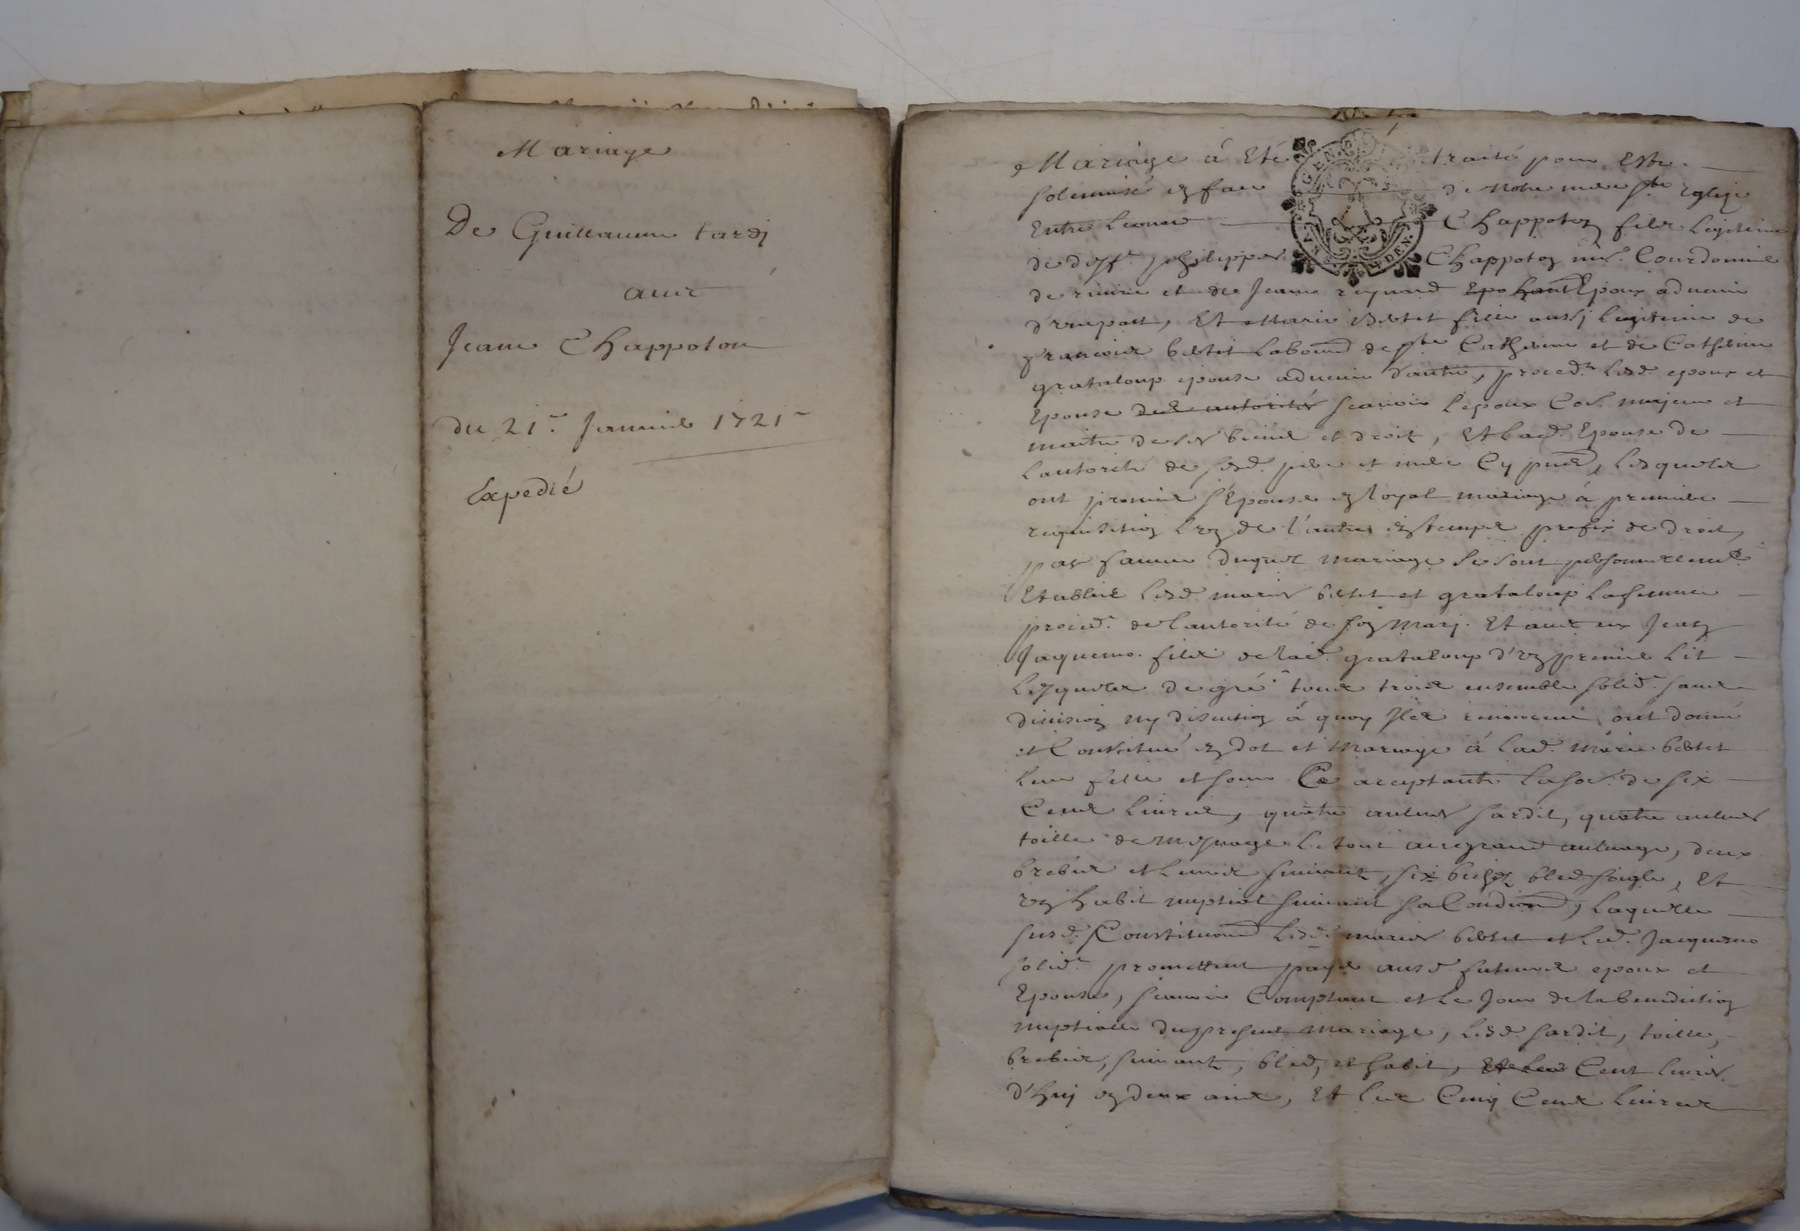 Mariage
De Guillaume tardj
avec
Jeane Chappoton
du 21.e Janvier 1721
Expedié
Mariage á Eté traité pour Estre
solemnisé en face de Notre mere ste Eglise
Entre Leonard Chappoton fils Legitime
de deff.t philippes Chappoton Courdonnier
de et de Jeane reynard Epoux advenir
d'unepart, Et Marie bertet fille aussj Legitime de
francois bertet Laboureur de ste Catherine et de Catherine
grataloup epouse advenir d'autre, proced.t Lesd. epoux et
Epouse scavoir Lepoux Co.e majeur et
maitre de ses biens et droit, Et Lad. Epouse de
Lautorité de sesd. pere et mere Cy pnts, Lesquels
ont promis s'Epouser en loyal mariage á premiere
requisition L'un de l'autre en temps prefix de droit,
par faveur duquel mariage se sont personnellem.t
Establis Lesd. maries bertet et grataloup La femme
proced.t de Lautorité de son Marj. Et avec eux Jean
Jaquemo fils de lad. grataloup d'un premier Lit
Lesquels de gré tous trois ensemble solid.t sans
division ny discution á quoy Ils renoncent, ont donné
et Constitué en dot et Mariage á Lad. Marie bertet
Leur fille et soeur Ce acceptante La so.e de six
Cents Livres, quatre aulnes sardit, quatre aulnes
toille de mesnage Le tout augrand aulnage, deux
brebis et Leurs suivants, six bichets bled seigle, Et
un habit nuptial suivant sa Condition, Laquelle
susd. Constitution Lesd. maries bertet et Led. Jacquemo
solid.t promettent payer ausd. futurs epoux et
Epouse, scavoir Comptant et Le Jour de la benediction
nuptialle du present mariage, Lesd. sardit, toille,
brebis, suivants, bled, et habit, Cent livres
d'huy en deux ans, Et Les Cinq Cents Livres